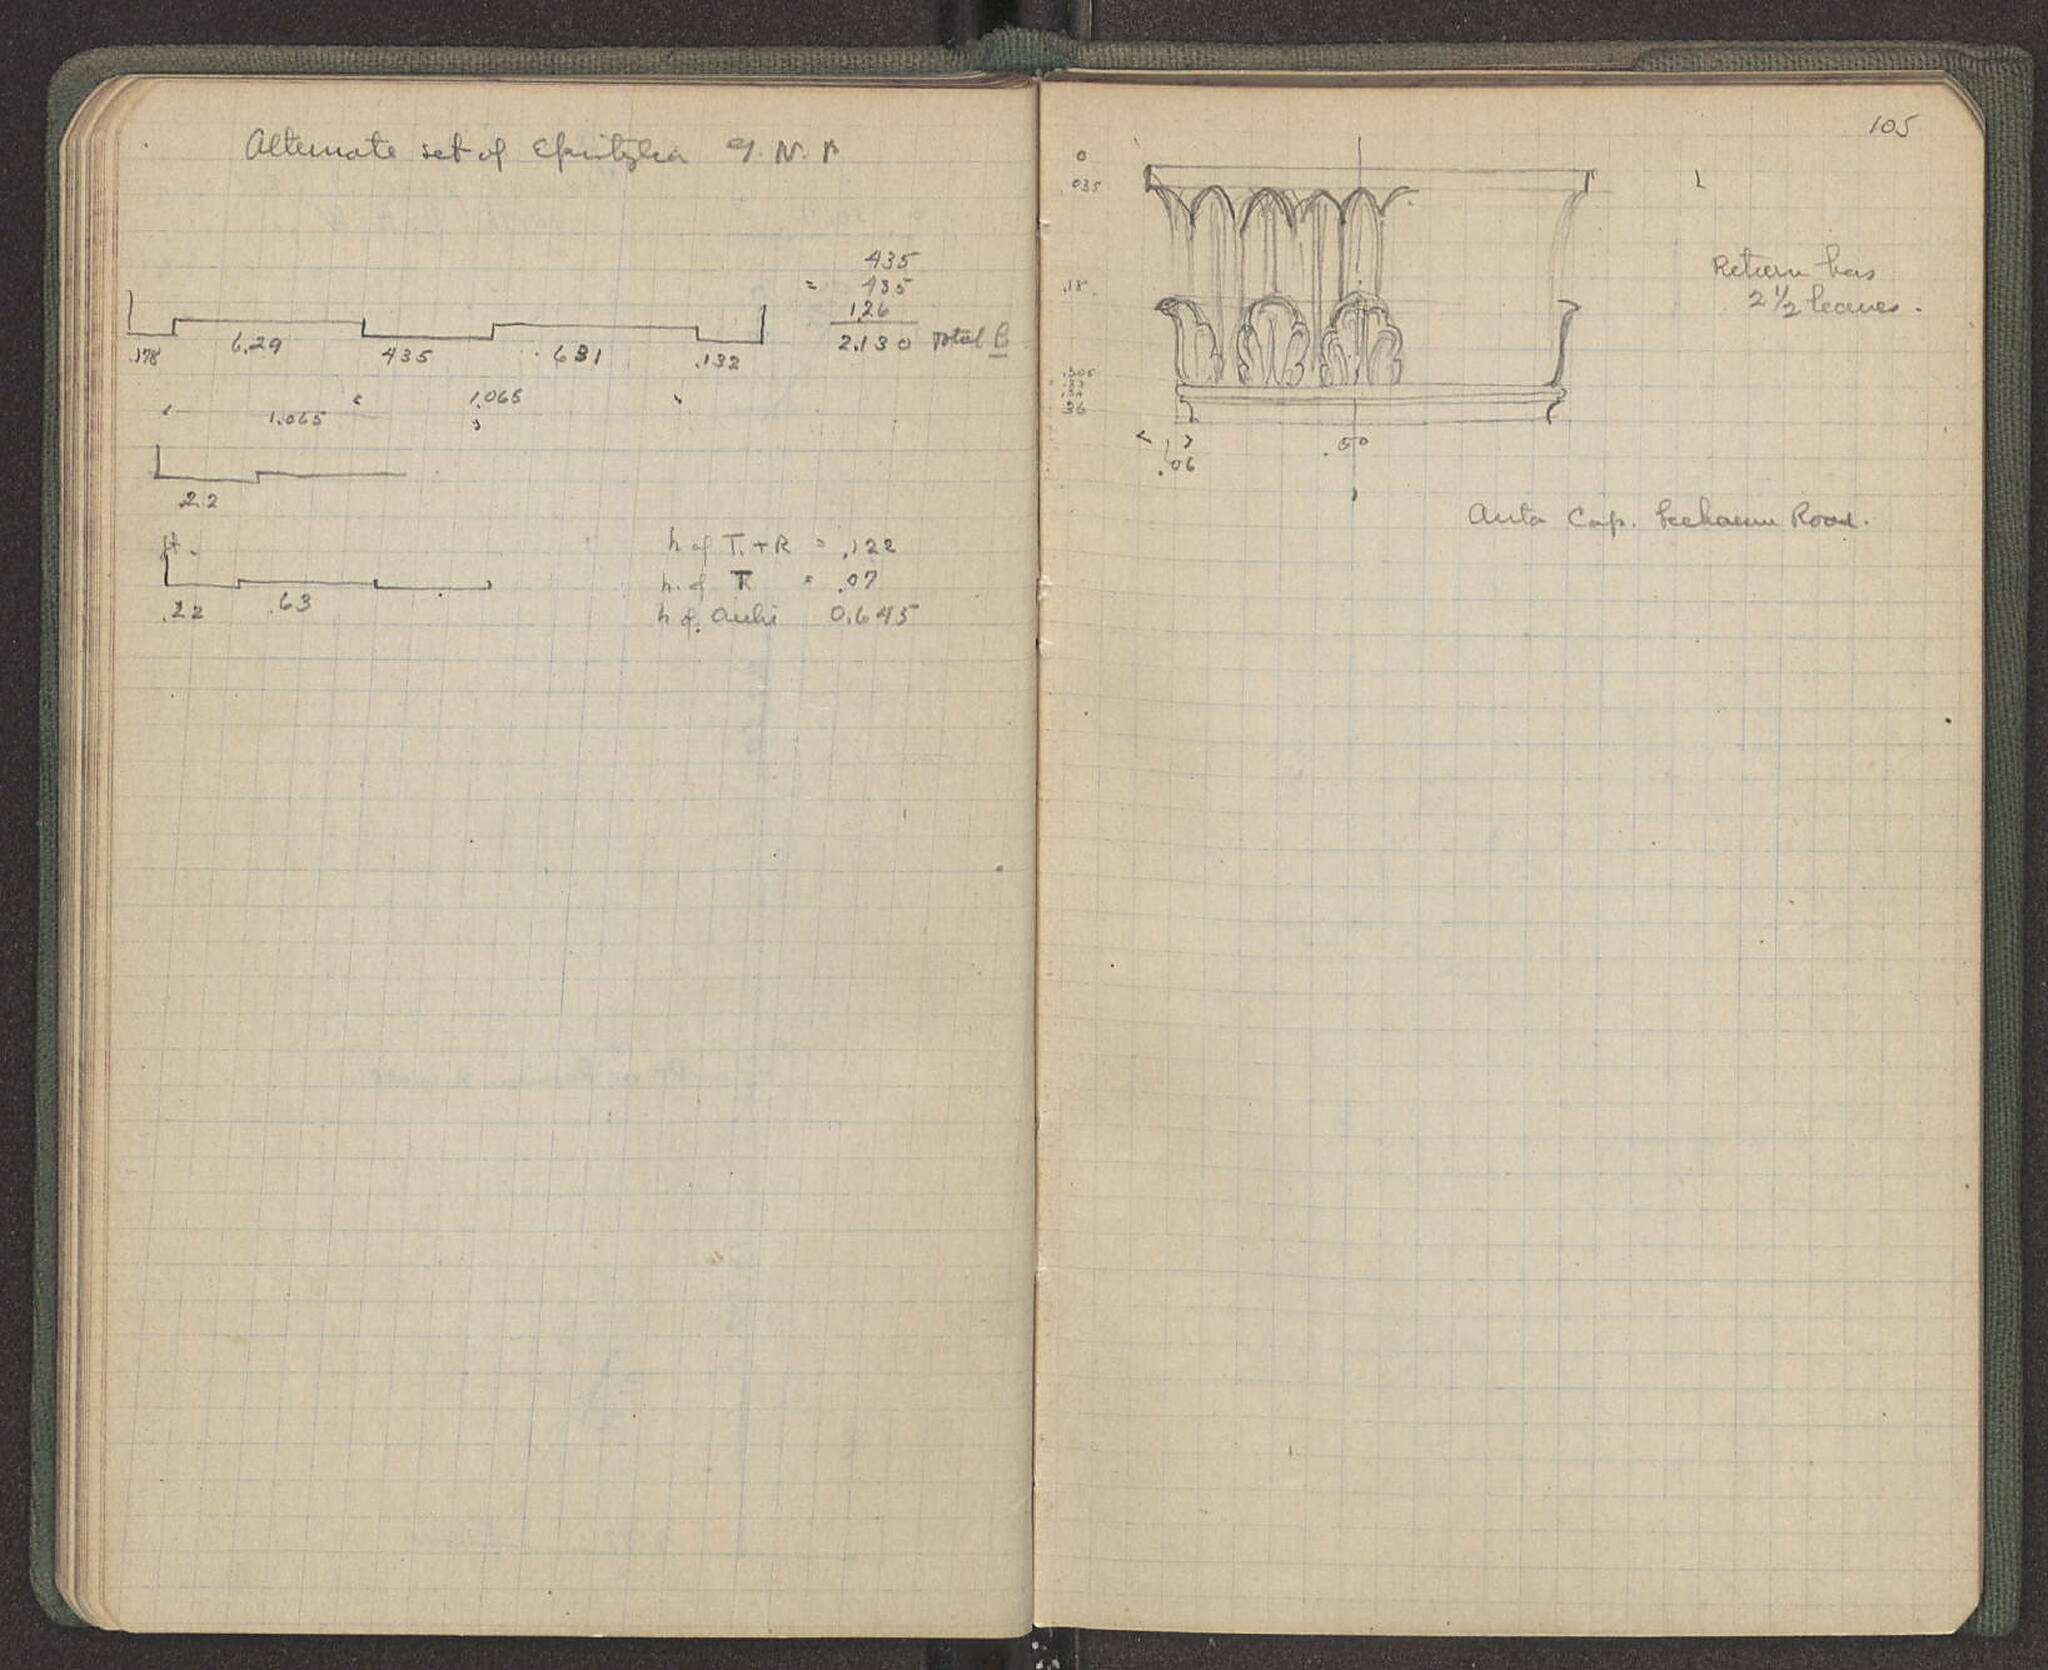 Alternate set of Epistylia G. N. P
435
= 435
1.26
2.130 Total B
.178 6.29 435 .631 .132
1.065
1.065
22
.22 .63
h of T. + R = .122
h. of T = .07
h of. Archi 0.645
105
0
.035
.18
.305
.33
.34
36
.06
.50
Return has
2 1/2 leaves.
Anta Cap. Lechaeum Road.